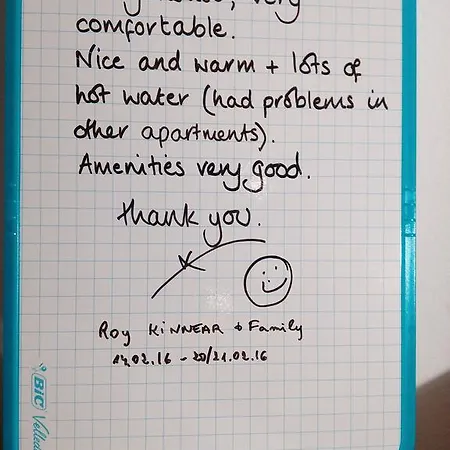 comfortable.
Nice and warm + lots of
hot water (had problems in
other apartments).
Amenities very good.
Thank you.
Roy KINNEAR & Family
14.02.16 - 20/21.02.16
BIC Velleda